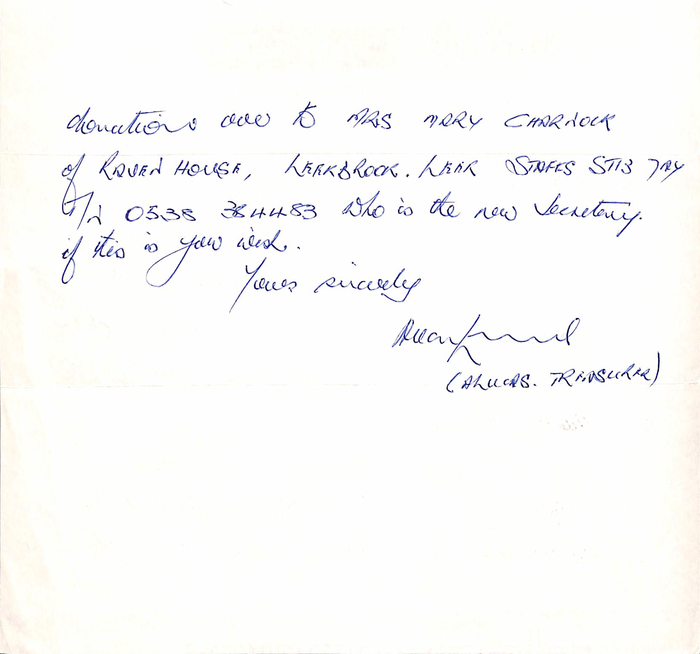 donations over to MRS MARY CHARNOCK
of RAVEN HOUSE, LEEKBROOK. LEEK STAFFS ST13 7AY
T/N 0538 384483 who is the new Secretary.
if this is your wish.
Yours sincerely
(A LUCAS. TREASURER)